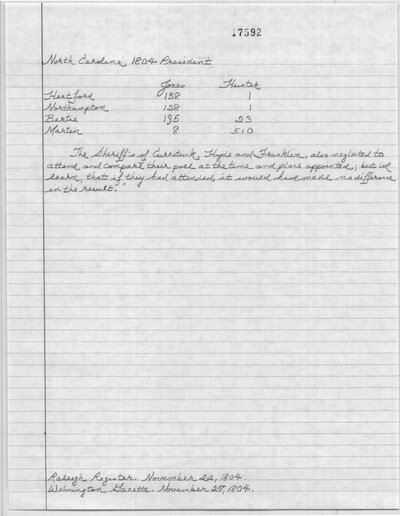 17592
North Carolina 1804 President
Jones Hunter
Hertford 158 1
Northampton 128 1
Bertie 195 23
Martin 8 510
The Sheriff's of Currituck, Hyde and Franklin, also neglected to
attend and compare their poll at the time and place appointed; but we
learn, that if they had attended, it would have made no difference
in the result."
Raleigh Register. November 22, 1804.
Wilmington Gazette. November 27, 1804.